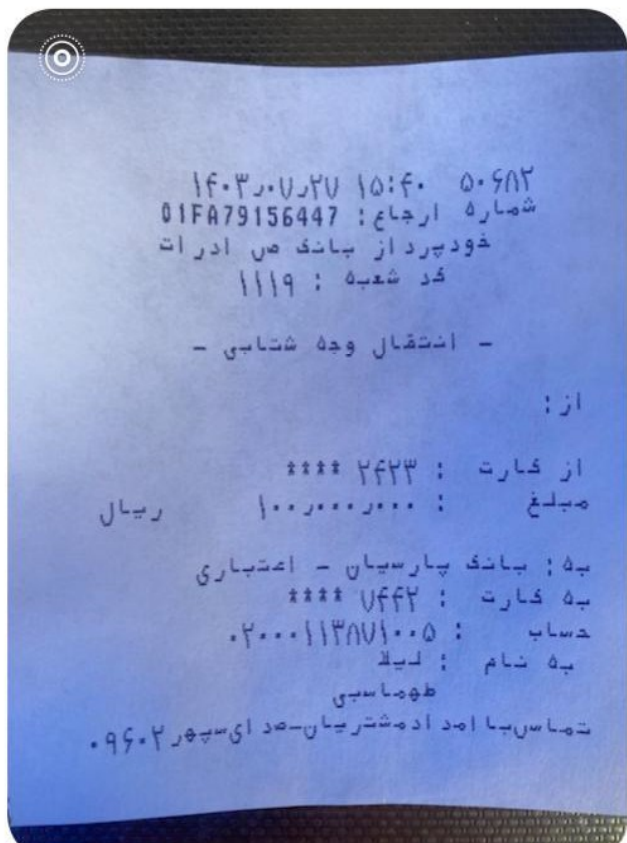 ۱۴۰۳٫۰۷٫۲۷ ۱۵:۴۰ ۵۰۶۸۲
شماره ارجاع: 01FA79156447
خودپرداز بانک صادرات
کد شعبه : ۱۱۱۹
- انتقال وجه شتابی -
از:
از کارت : ۲۴۲۳ ****
مبلغ : ۱۰۰٫۰۰۰٫۰۰۰ ریال
به: بانک پارسیان - اعتباری
به کارت : ۷۴۴۲ ****
حساب : ۰۲۰۰۰۱۱۳۸۷۱۰۰۵
به نام : لیلا
طهماسبی
تماس با امداد مشتریان-صدای سپهر ۰۹۶۰۲